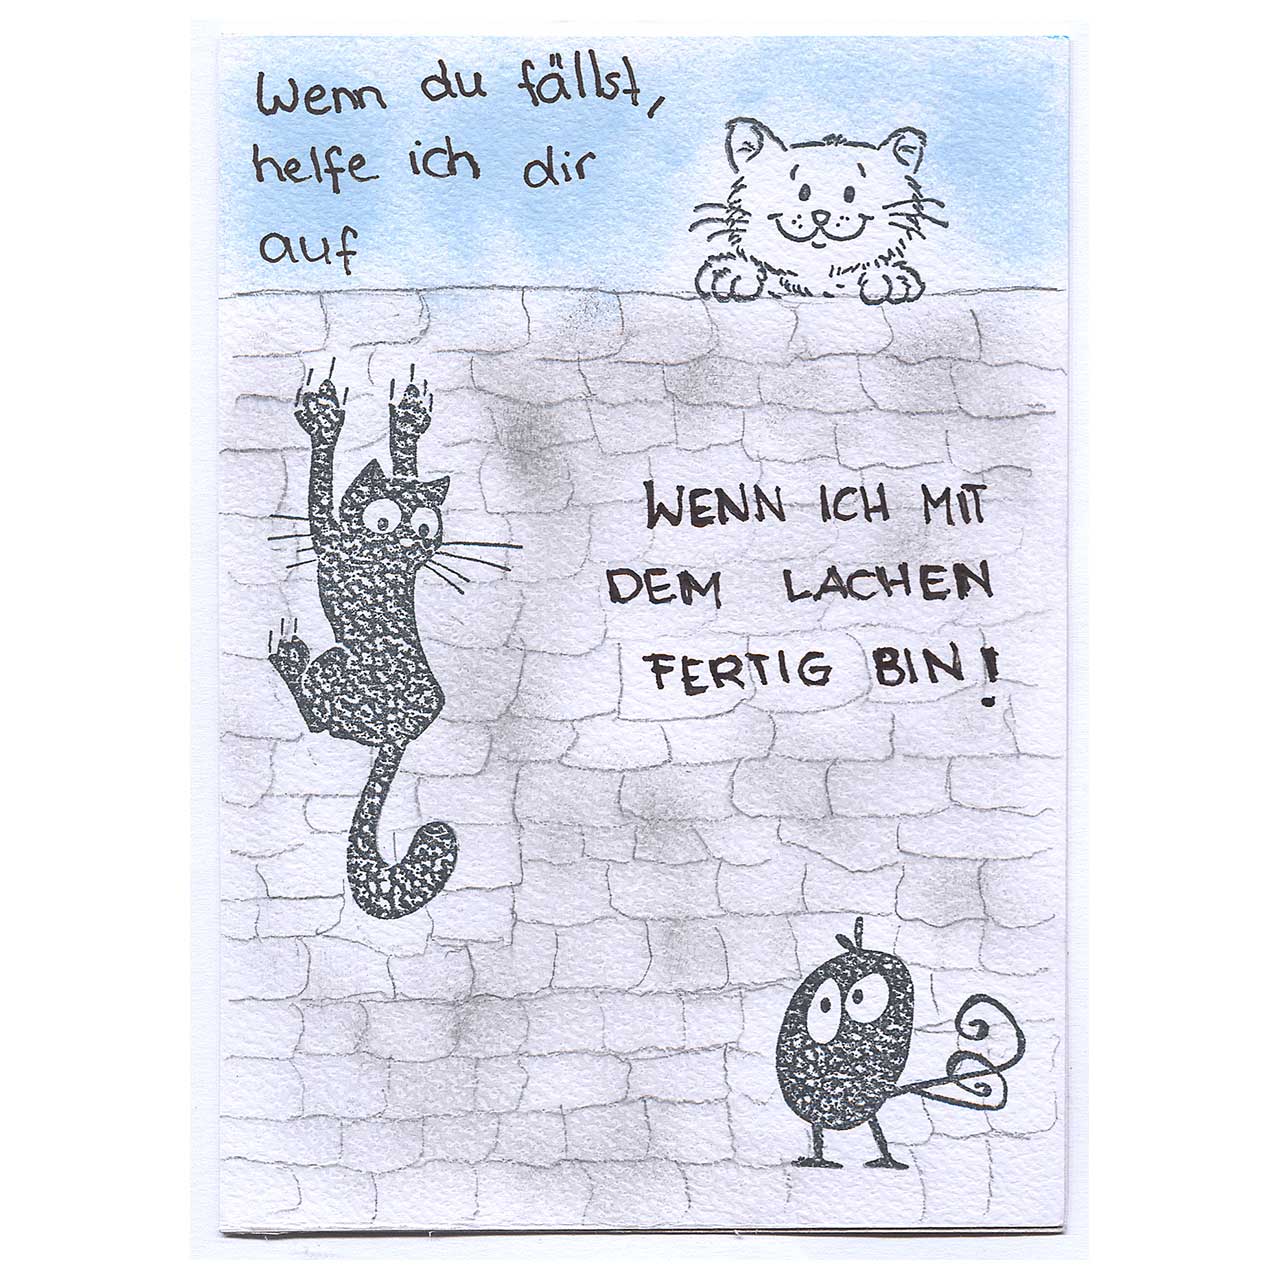 Wenn du fällst,
helfe ich dir
auf
WENN ICH MIT
DEM LACHEN
FERTIG BIN!